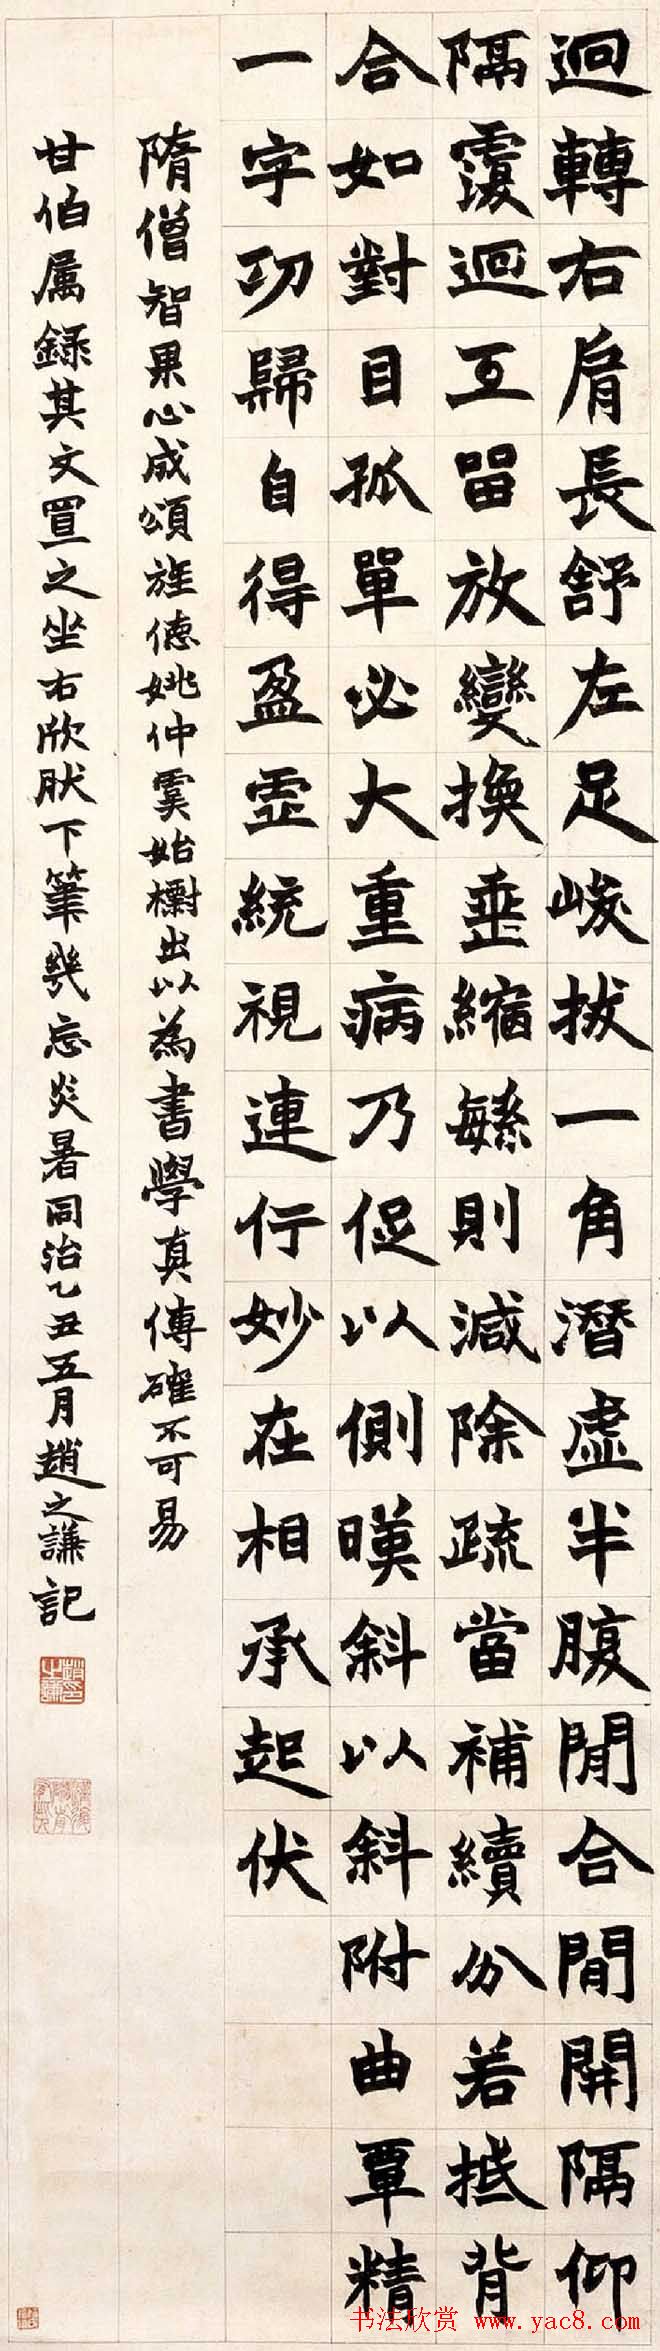 迴轉右肩長舒左足峻拔一角潛虛半腹間合間開隔仰
隔覆迴互留放變換垂縮繁則減除疏當補續分若抵背
合如對目孤單必大重病乃促以側暎斜以斜附曲覃精
一字功歸自得盈虛統視連行妙在相承起伏
隋僧智果心成頌旌德姚仲虞始出以為書學真傳確不可易
甘伯属錄其文置之坐右欣肰下筆幾忘炎暑同治乙丑五月趙之謙記
趙之謙印
书法欣赏 www.yac8.com